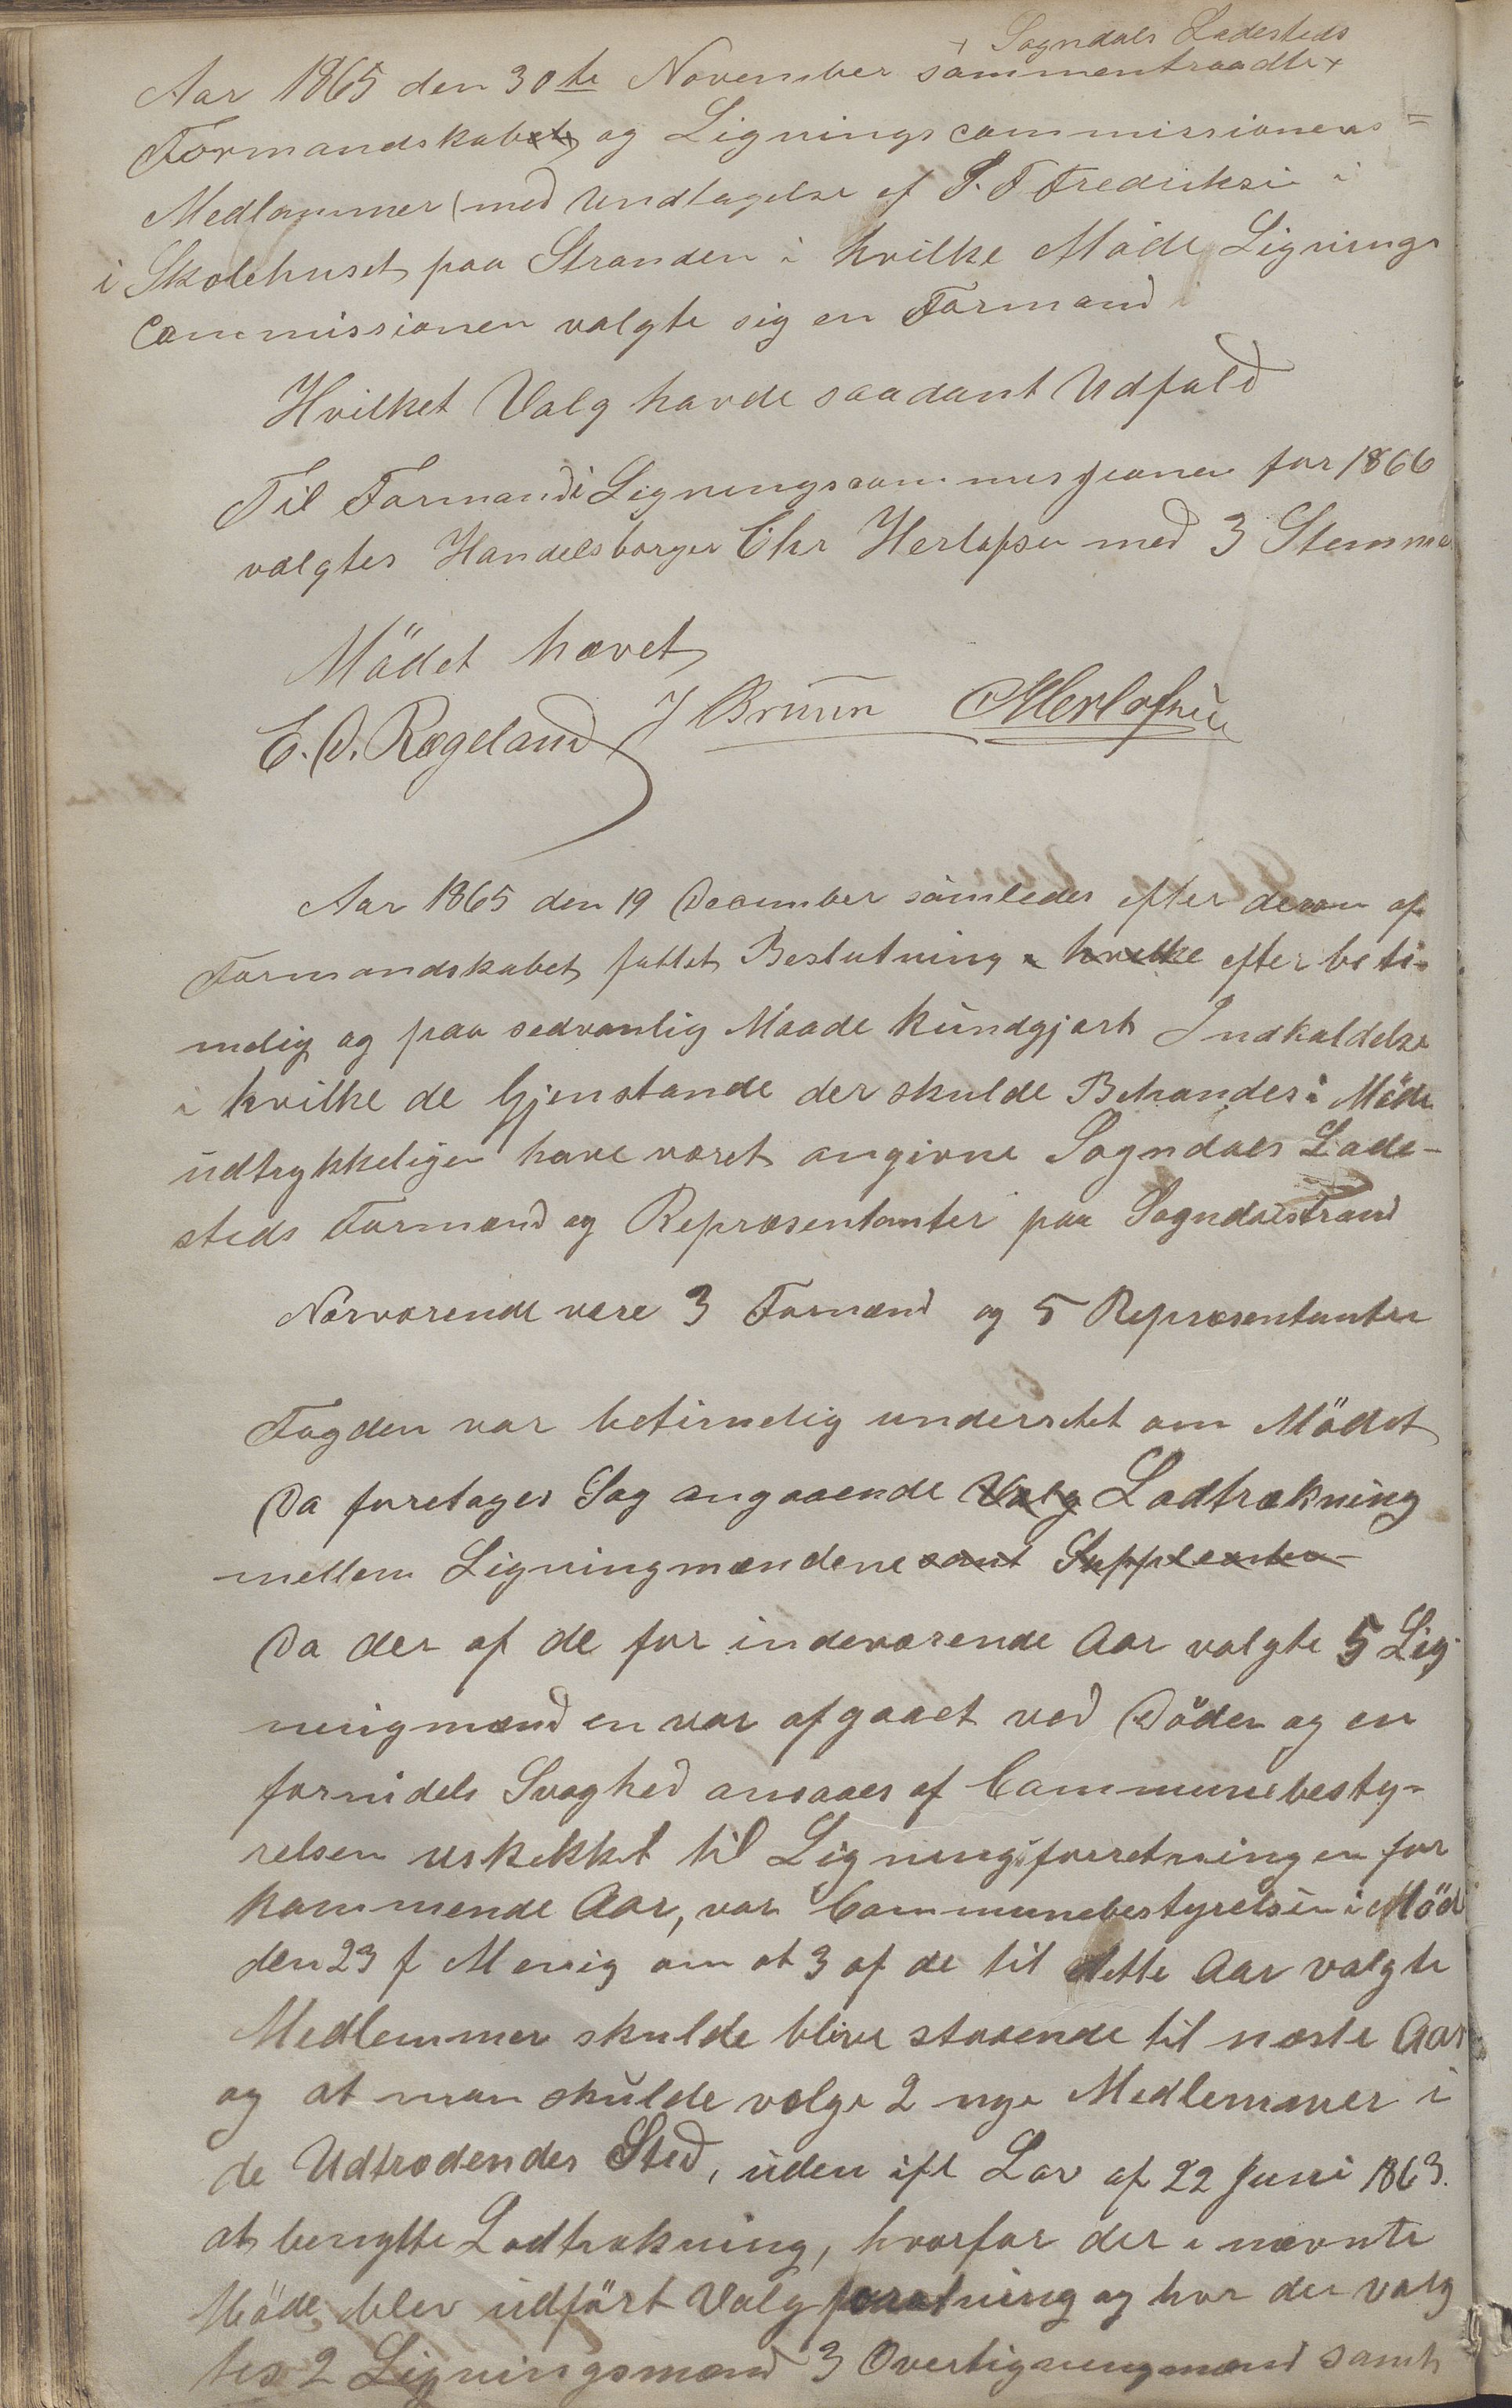 + Sogndals Ladesteds
Aar 1865 den 30te November sammentraadte +
Formandskabet og Ligningscommissionens =
Medlemmer (med Undtagelse af P. T Fredriksen i
i Skolehuset paa Stranden i hvilke Møde Lignings
Commissionen valgte sig en Formand
Hvilket Valg havde saadant Udfald
Til Formand i Ligningscommissionen for 1866
valgtes Handelsborger Chr Herlofsen med 3 Stemmer
Mödet hævet
E. O. Rægeland J Bruun CHerlofsen
Aar 1865 den 19 December samledes efter derom af
Formandskabet fattet Beslutning hvilke efter beti-
melig og paa sedvanlig Maade kundgjort Indkaldelse
i hvilke de Gjenstande der skulde Behandes i Möde
udtrykkeligen have været angivne Sogndals Lade-
steds Formænd og Repræsentanter paa Sogndalstrand
Nærværende være 3 Formænd og 5 Repræsentanter
Fogden var betimelig underrettet om Mödet
Da foretoges Sag angaaende Valg Lodtrækning
mellem Ligningmændene samt Supplenter
Da der af de for indeværende Aar valgte 5 Lig-
ningmænd en var afgaaet ved Döden og en
formidels Svaghed ansaaes af Communebesty-
relsen uskikket til Ligningsforretningen for
kommende Aar, var Communebestyrelsen i Möd
den 23 f M enig om at 3 af de til dette Aar valgte
Medlemmer skulde blive staaende til næste Aar
og at man skulde vælge 2 nye Medlemmer i
de Udtrædendes Sted, uden ifl Lov af 22 Juni 1863.
at benytte Lodtrækning, hvorfor der i nævnte
Möde blev udfört Valgforretning og hvor der valg
tes 2 Ligningsmænd 3 Overligningmænd samt